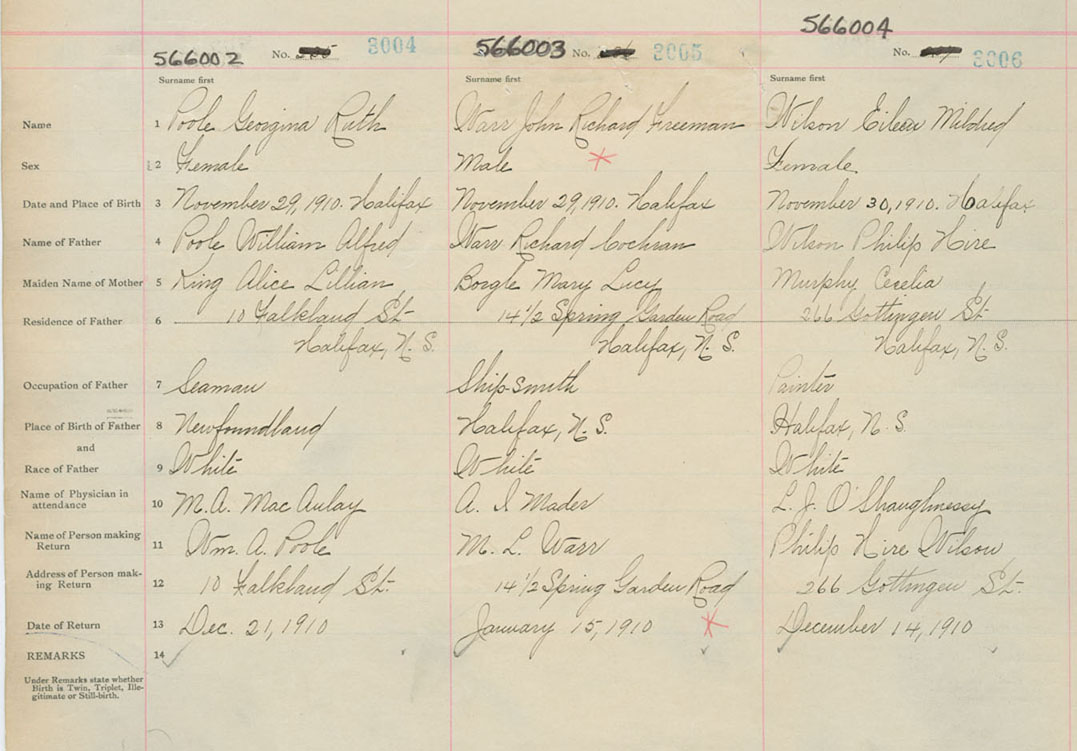 566002 No. 3004 566003 No. 3005 566004 No. 3006
Surname first Surname first Surname first
Name 1 Poole Georgina Ruth Warr John Richard Freeman Wilson Eileen Mildred
Sex 2 Female Male Female
Date and Place of Birth 3 November 29, 1910. Halifax November 29, 1910. Halifax November 30, 1910. Halifax
Name of Father 4 Poole William Alfred Warr Richard Cochran Wilson Philip Hire
Maiden Name of Mother 5 King Alice Lillian Mary Lucy Murphy Cecelia
Residence of Father 6 10 Falkland St. 14 1/2 Spring Garden Road 266 Gottingen St.
Halifax, N. S. Halifax, N. S. Halifax, N. S.
Occupation of Father 7 Seaman Ship-smith Painter
Place of Birth of Father 8 Newfoundland Halifax, N. S. Halifax, N. S.
and
Race of Father 9 White White White
Name of Physician in
attendance 10 M. A. MacAulay A. I Mader L. J. O'Shaughnessy
Name of Person making
Return 11 Wm. A. Poole M. L. Warr Philip Hire Wilson
Address of Person mak-
ing Return 12 10 Falkland St. 14 1/2 Spring Garden Road 266 Gottingen St.
Date of Return 13 Dec. 21, 1910 January 15, 1910 December 14, 1910
REMARKS 14
Under Remarks state whether
Birth is Twin, Triplet, Ille-
gitimate or Still-birth.